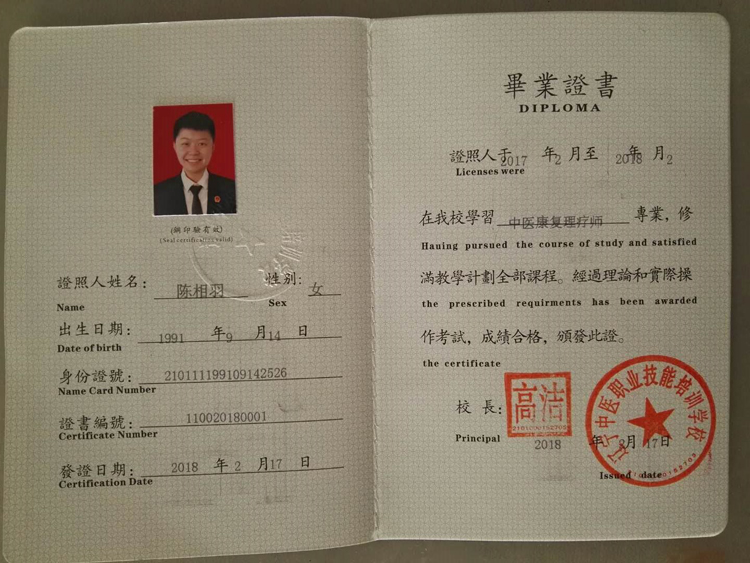 (鋼印驗有效)
(Seal certification valid)
證照人姓名: 陈相羽 性别: 女
Name Sex
出生日期: 1991 年 9 月 14 日
Date of birth
身份證號: 210111199109142526
Name Card Number
證書編號: 110020180001
Certificate Number
發證日期: 2018 年 2 月 17 日
Certification Date
畢業證書
DIPLOMA
證照人于 2017 年 2 月至 2018 年 月 2
Licenses were
在我校學習 中医康复理疗师 專業, 修
Hauing pursued the course of study and satisfied
滿教學計劃全部課程。經過理論和實際操
the prescribed requirments has been awarded
作考試, 成績合格, 頒發此證。
the certificate
校長: 高洁
Principal
辽宁中医职业技能培训学校
2018 年 2 月 17 日
Issued date